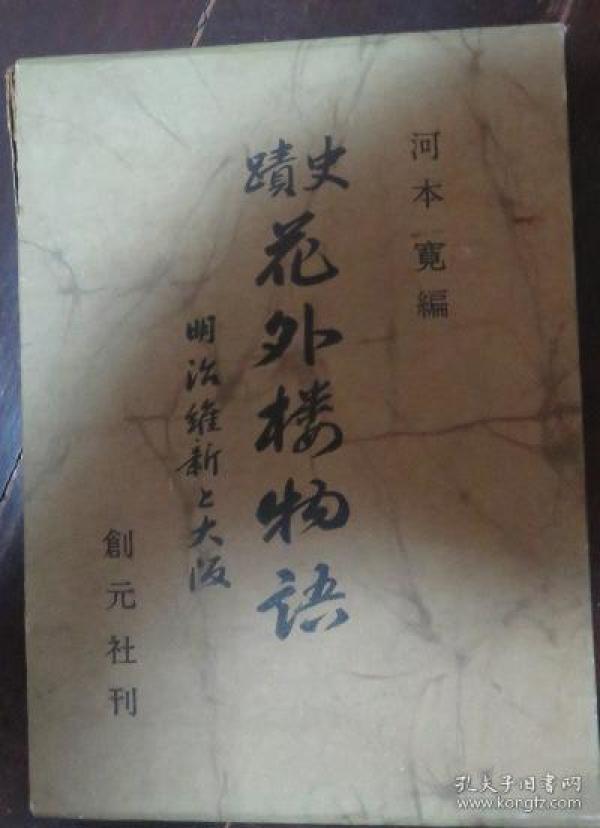 河本寛編
史蹟
花外楼物語
明治維新と大阪
創元社刊
孔夫子旧书网
www.kongfz.com